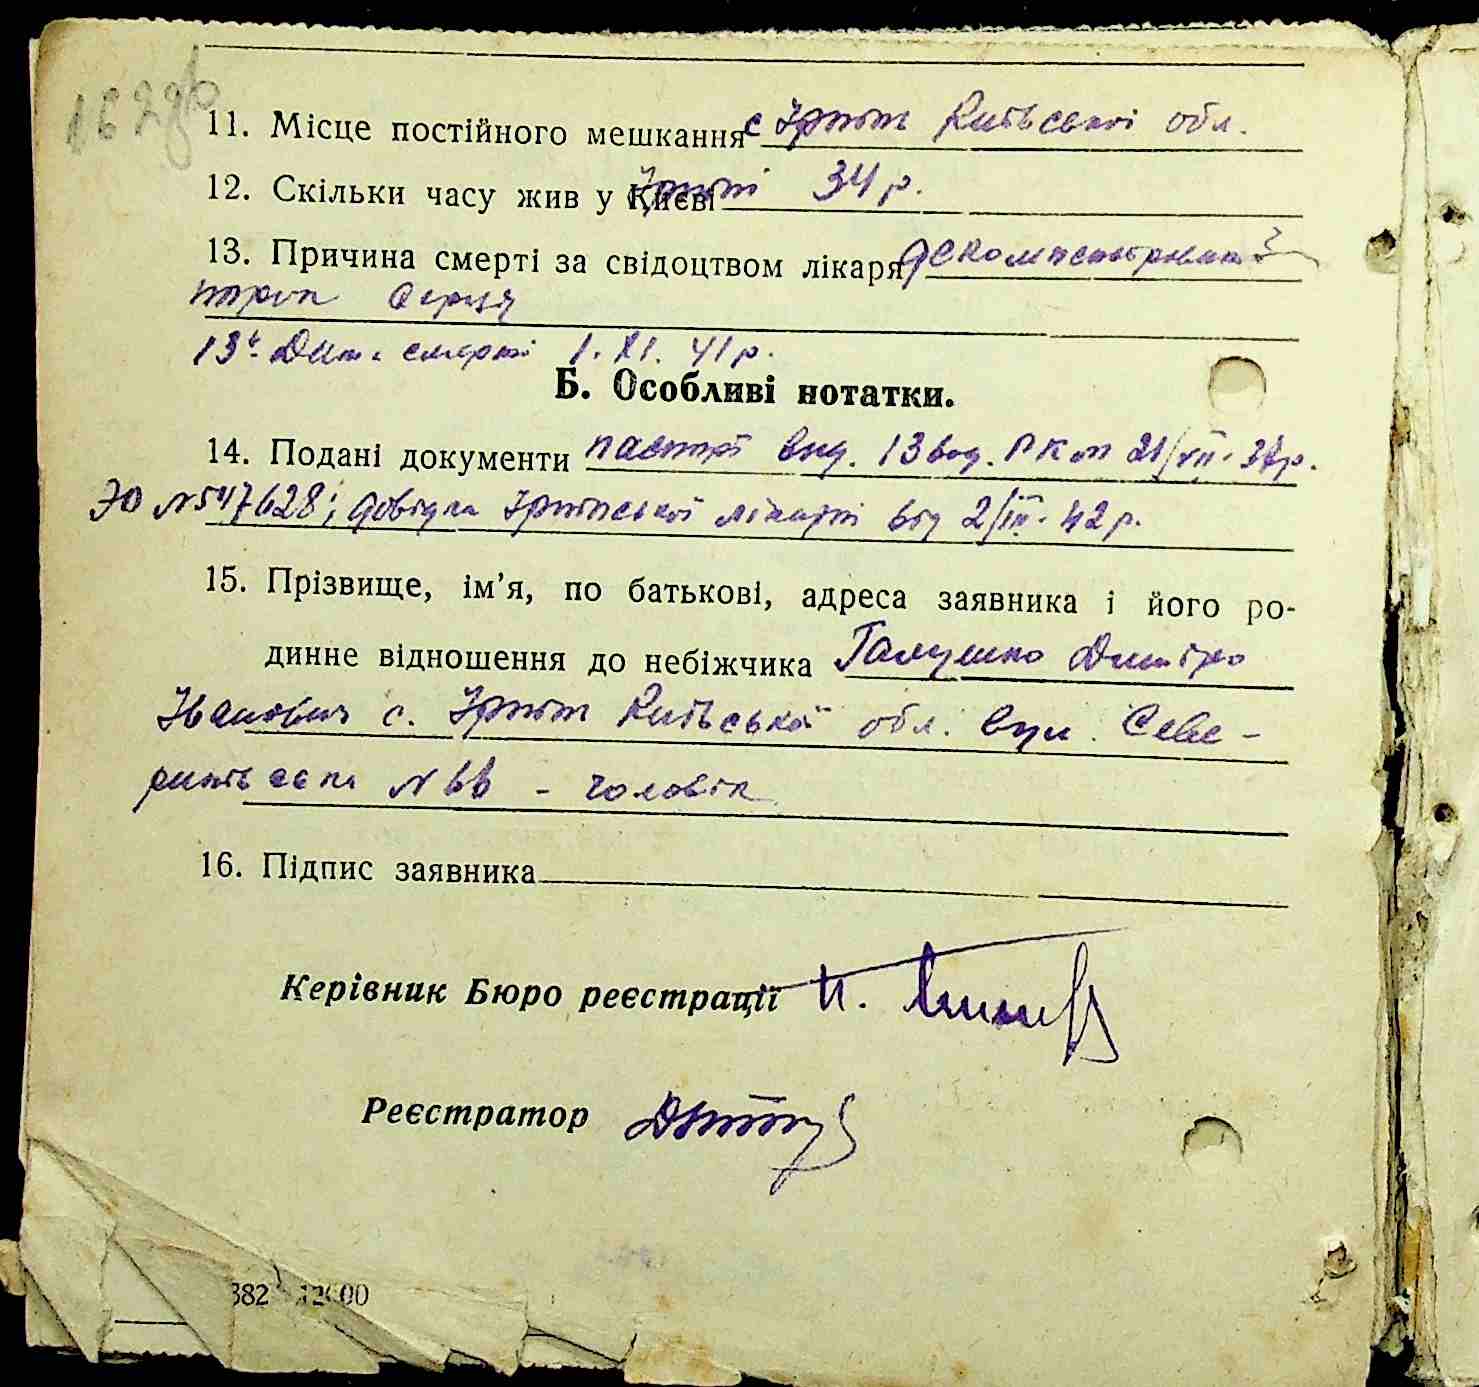 162 зв
11. Місце постійного мешкання с Ірпінь Київської обл.
12. Скільки часу жив у Києві Ірпіні 34 р.
13. Причина смерті за свідоцтвом лікаря декомпенсірований
порок серця
13а. Дата смерті 1.XI.41 р.
Б. Особливі нотатки.
14. Подані документи паспорт вид. 13 від. РКМ 21/VII-37р.
ЭЮ №547628; довідка Ірпінської лікарні від 2/III-42 р.
15. Прізвище, ім'я, по батькові, адреса заявника і його ро-
динне відношення до небіжчика Галушко Дмитро
Іванович с. Ірпінь Київської обл. вул. Севе-
ринівська №66 - чоловік
16. Підпис заявника
Керівник Бюро реєстрації
Реєстратор
382 12000